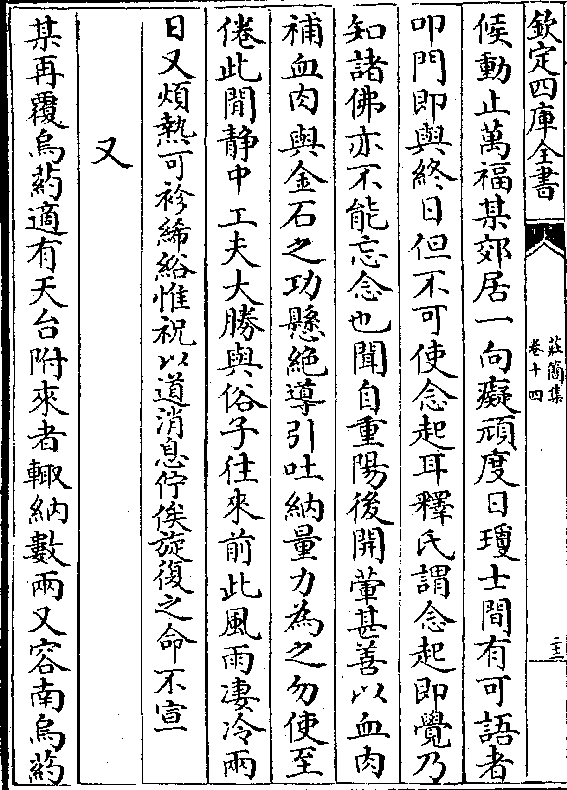 欽定四庫全書
莊簡集
卷十四
候動止萬福某郊居一向癡頑度日瓊士間有可語者
叩門即與終日但不可使念起耳釋氏謂念起即覺乃
知諸佛亦不能忘念也聞自重陽後開葷甚善以血肉
補血肉與金石之功懸絶導引吐納量力為之勿使至
倦此閒静中工夫大勝與俗子往來前此風雨凄冷兩
日又煩熱可袗絺綌惟祝以道消息佇俟旋復之命不宣
又
某再覆烏藥適有天台附來者輙納數兩又容南烏藥